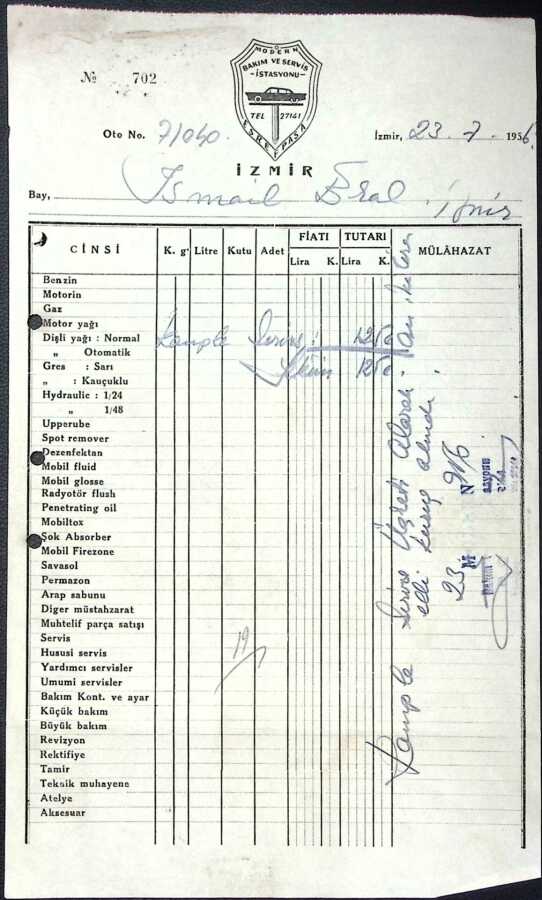 MODERN
BAKIM VE SERVİS
-İSTASYONU-
TEL 27141
EŞREFPAŞA
İZMİR
№ 702
Oto No. 71040
İzmir, 23.7.1956
Bay, İsmail Eral. İzmir
CİNSİ K. g. Litre Kutu Adet FİATI TUTARI MÜLÂHAZAT
Lira K. Lira K.
Benzin
Motorin
Gaz
Motor yağı
Dişli yağı : Normal
„ Otomatik
Gres : Sarı
„ : Kauçuklu
Hydraulic : 1/24
„ 1/48
Upperube
Spot remover
Dezenfektan
Mobil fluid
Mobil glosse
Radyotör flush
Penetrating oil
Mobiltox
Şok Absorber
Mobil Firezone
Savasol
Permazon
Arap sabunu
Diger müstahzarat
Muhtelif parça satışı
Servis
Hususi servis
Yardımcı servisler
Umumi servisler
Bakım Kont. ve ayar
Küçük bakım
Büyük bakım
Revizyon
Rektifiye
Tamir
Teknik muhayene
Atelye
Aksesuar
komple servis : 1250
1250
19
Komple servis ücreti olarak on iki lira
elli kuruş alındı